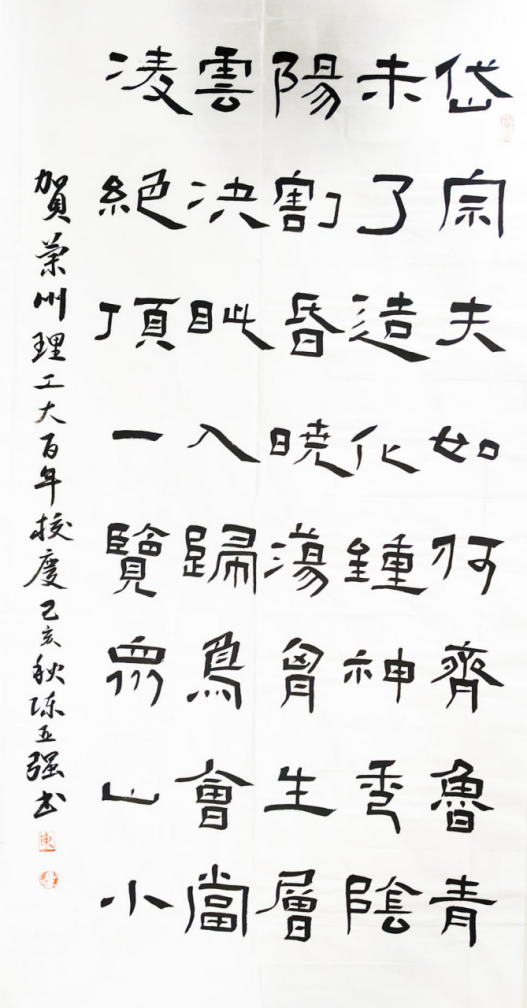 岱宗夫如何齊魯青
未了造化鍾神秀陰
陽割昏暁蕩胷生層
雲决眦入歸鳥會當
凌絶頂一覽眾山小
賀蘭州理工大百年校慶己亥秋陈五强书